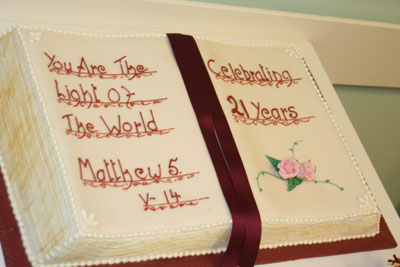 You Are The
Light Of
The World
Matthew 5.
V-14
Celebrating
21 Years